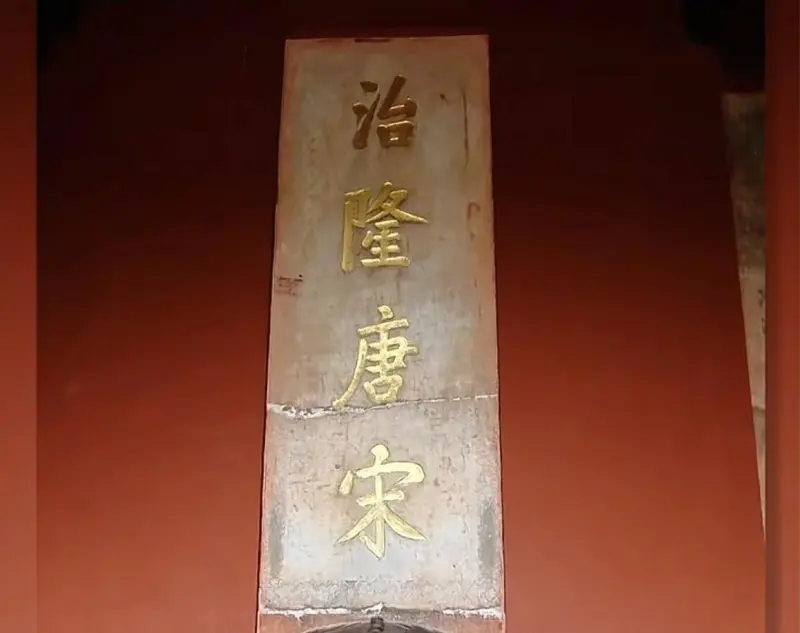 治隆唐宋